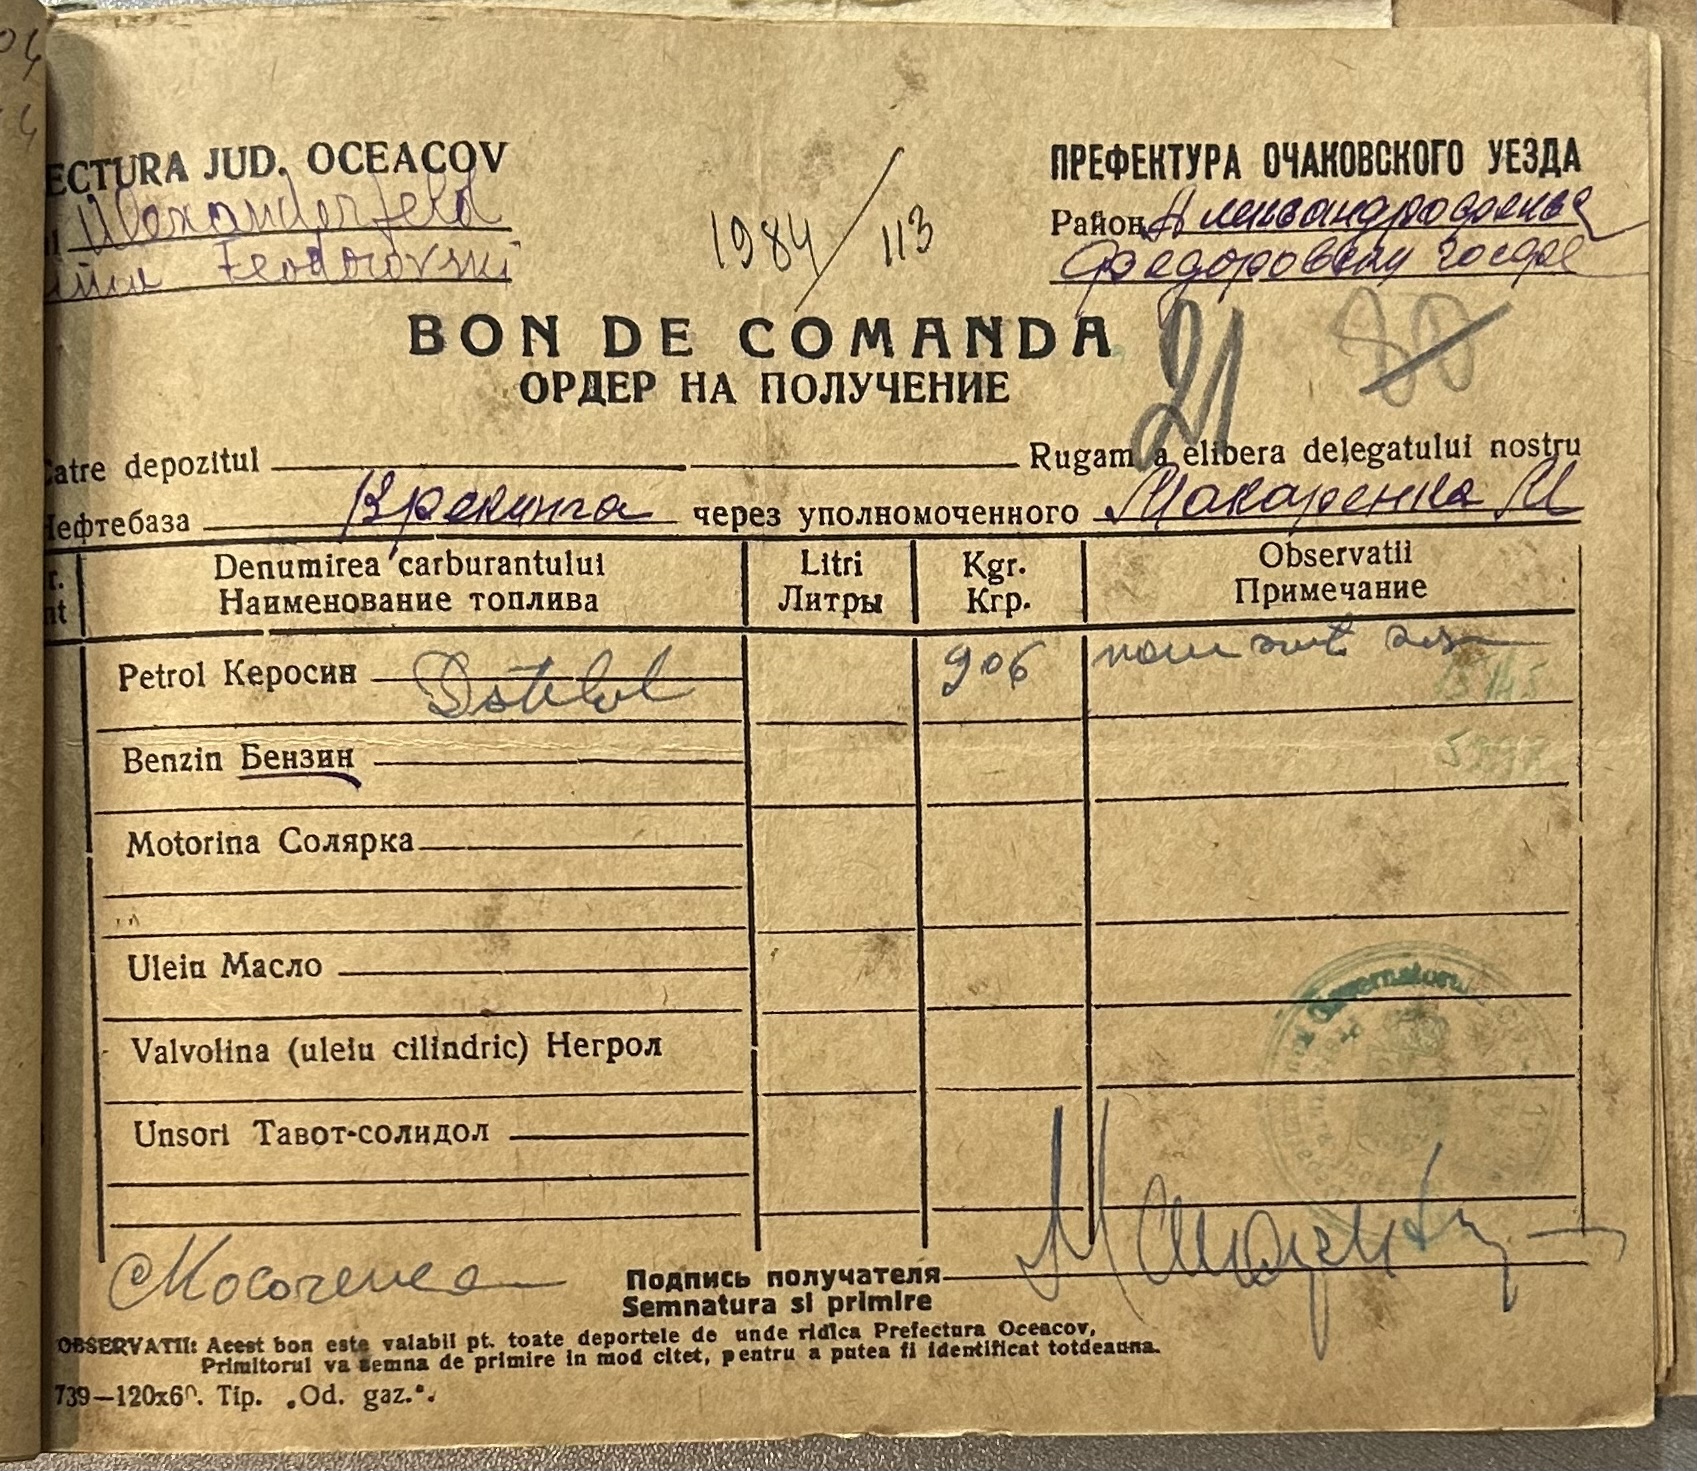 ECTURA JUD. OCEACOV
ПРЕФЕКТУРА ОЧАКОВСКОГО УЕЗДА
Alexanderfeld
Район
Feodorovski
1984/113
BON DE COMANDA
21
80
ОРДЕР НА ПОЛУЧЕНИЕ
Catre depozitul Rugam a elibera delegatului nostru
Нефтебаза Крекинга через уполномоченного Макаренка М
r. Denumirea carburantului Litri Kgr. Observatii
nt Наименование топлива Литры Кгр. Примечание
Petrol Керосин 906
Benzin Бензин
Motorina Солярка
Uleiu Масло
Valvolina (uleiu cilindric) Негрол
Unsori Тавот-солидол
Guvernatorul
Подпись получателя
Semnatura si primire
OBSERVATII: Acest bon este valabil pt. toate deportele de unde ridica Prefectura Oceacov,
Primitorul va semna de primire in mod citet, pentru a putea fi identificat totdeauna.
739—120x60. Tip. „Od. gaz.".